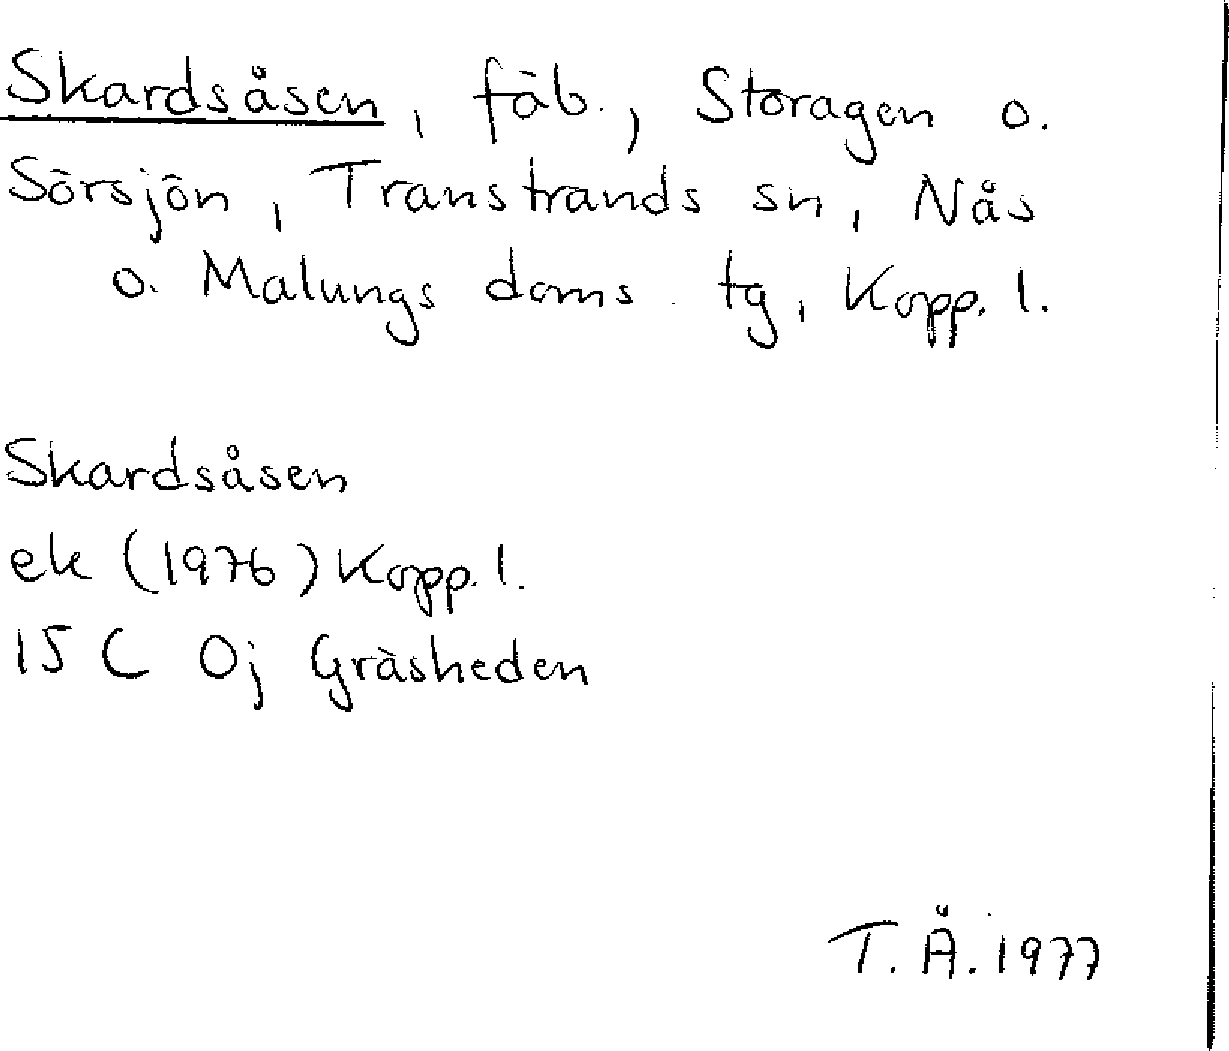 Skardsåsen, fäb., Storagen o.
Sörsjön, Transtrands sn, Nås
o. Malungs doms. tg, Kopp. l.
Skardsåsen
ek (1976) Kopp. l.
15 C 0j Gräsheden
T. Å. 1977